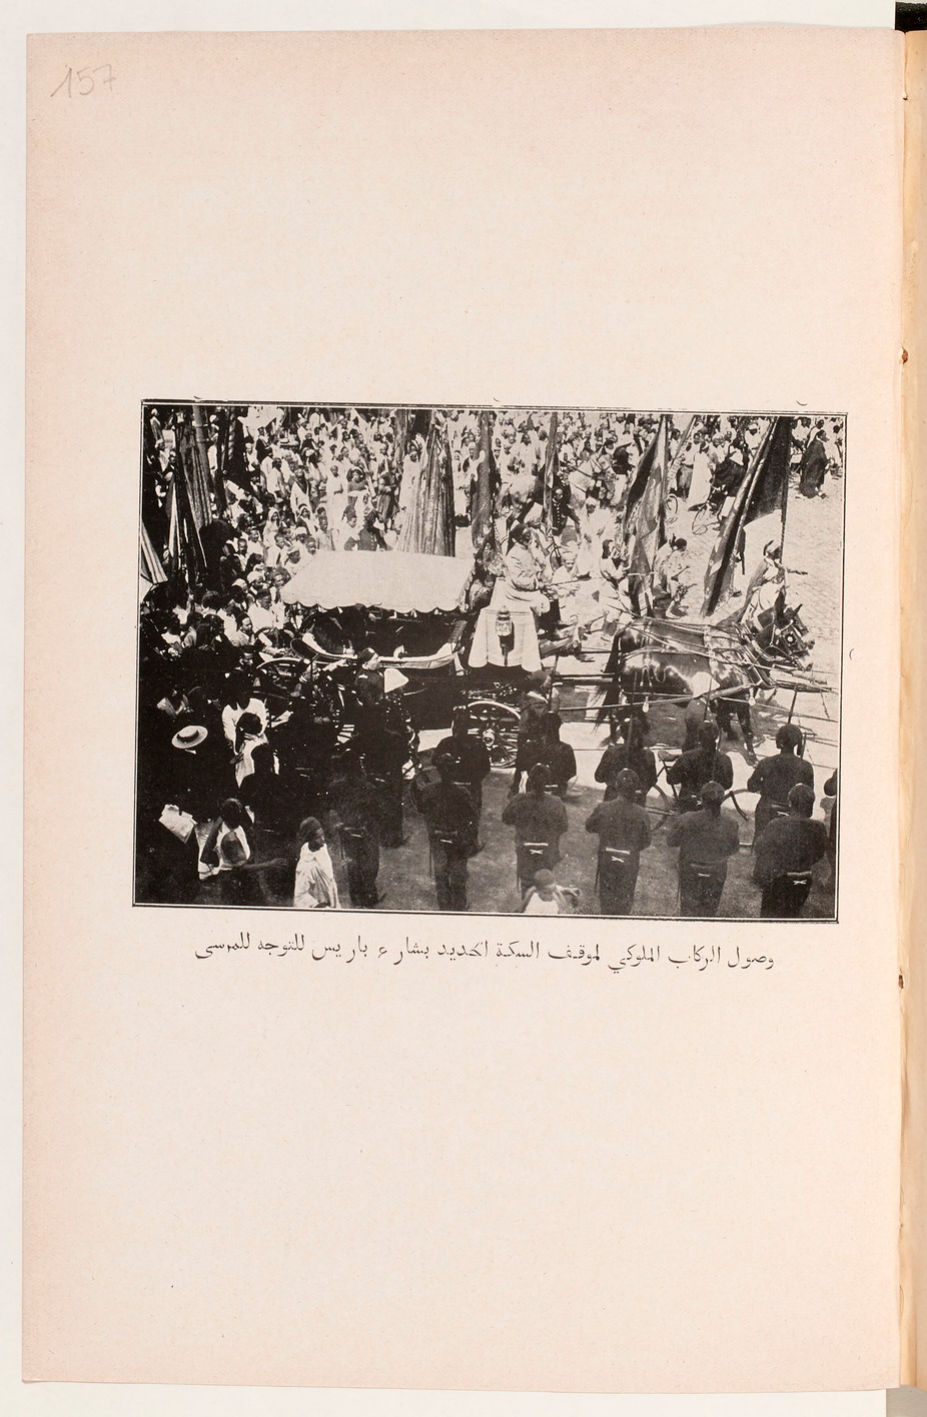 157
وصول الركاب الملوكي لموقف السكة الحديد بشارع باريس للتوجه للمرسى